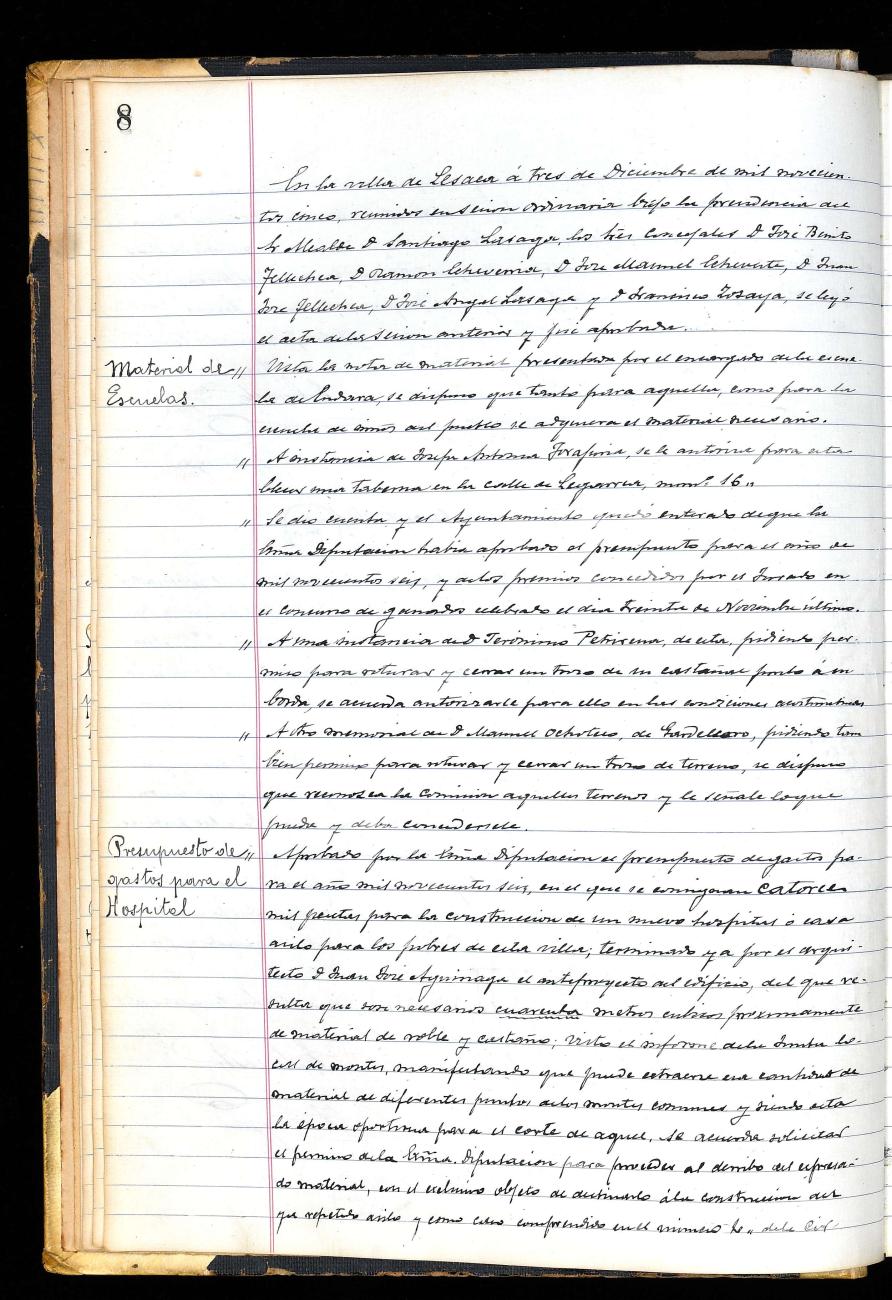 8
En la villa de Lesaca á tres de Diciembre de mil novecien-
tos cinco, reunidos en sesion ordinaria bajo la presidencia del
Sr Alcalde D Santiago Lasaga, los tres Concejales D José Benito
Tellechea, D Ramon Echeverria, D Jose Manuel Echeverte, D Juan
Jose Tellechea, D José Angel Lasaga y D Francisco Zosaya, se leyó
el acta de la sesion anterior y fué aprobada.
Material de
Escuelas.
" Vista la nota de material presentada por el encargado de la escue-
la de Endara, se dispuso que tanto para aquella, como para la
escuela de niños del pueblo se adquiera el material necesario.
" A instancia de Josefa Antonia se le autoriza para esta
blecer una taberna en la calle de Legarrea, num.º 16"
" Se dio cuenta y el Ayuntamiento quedó enterado de que la
Exma Diputacion habia aprobado el presupuesto para el año de
mil novecientos seis, y de los premios concedidos por el Jurado en
el concurso de ganados celebrado el dia treinta de Noviembre último.
" A una instancia de D Jerónimo Petrirena, de esta, pidiendo per-
miso para roturar y cerrar un trozo de su castañal junto á su
borda, se acuerda autorizarle para ello en las condiciones acostumbradas
" A otro memorial de D Manuel Ochoteco, de pidiendo tam
bien permiso para roturar y cerrar un trozo de terreno, se dispuso
que reconozca la Comision aquellos terrenos y le señale lo que
pueda y deba concedersele.
Presupuesto de
gastos para el
Hospital
" Aprobado por la Exma Diputacion el presupuesto de gastos pa-
ra el año mil novecientos seis, en el que se consignan catorce
mil pesetas para la construccion de un nuevo hospital ó casa
asilo para los pobres de esta villa; terminado ya por el arqui-
tecto D Juan José Aguinaga el anteproyecto del edificio, del que re-
sulta que son necesarios cuarenta metros cubicos proximamente
de material de roble y castaño; visto el informe de la Junta lo-
cal de montes, manifestando que puede extraerse esa cantidad de
material de diferentes puntos de los montes comunes y siendo esta
la época oportuna para el corte de aquel, se acuerda solicitar
el permiso de la Exma. Diputacion para proceder al derribo del expresa-
do material, con el exclusivo objeto de destinarlo á la construccion del
ya repetido asilo y como caso comprendido en el número de la Cir